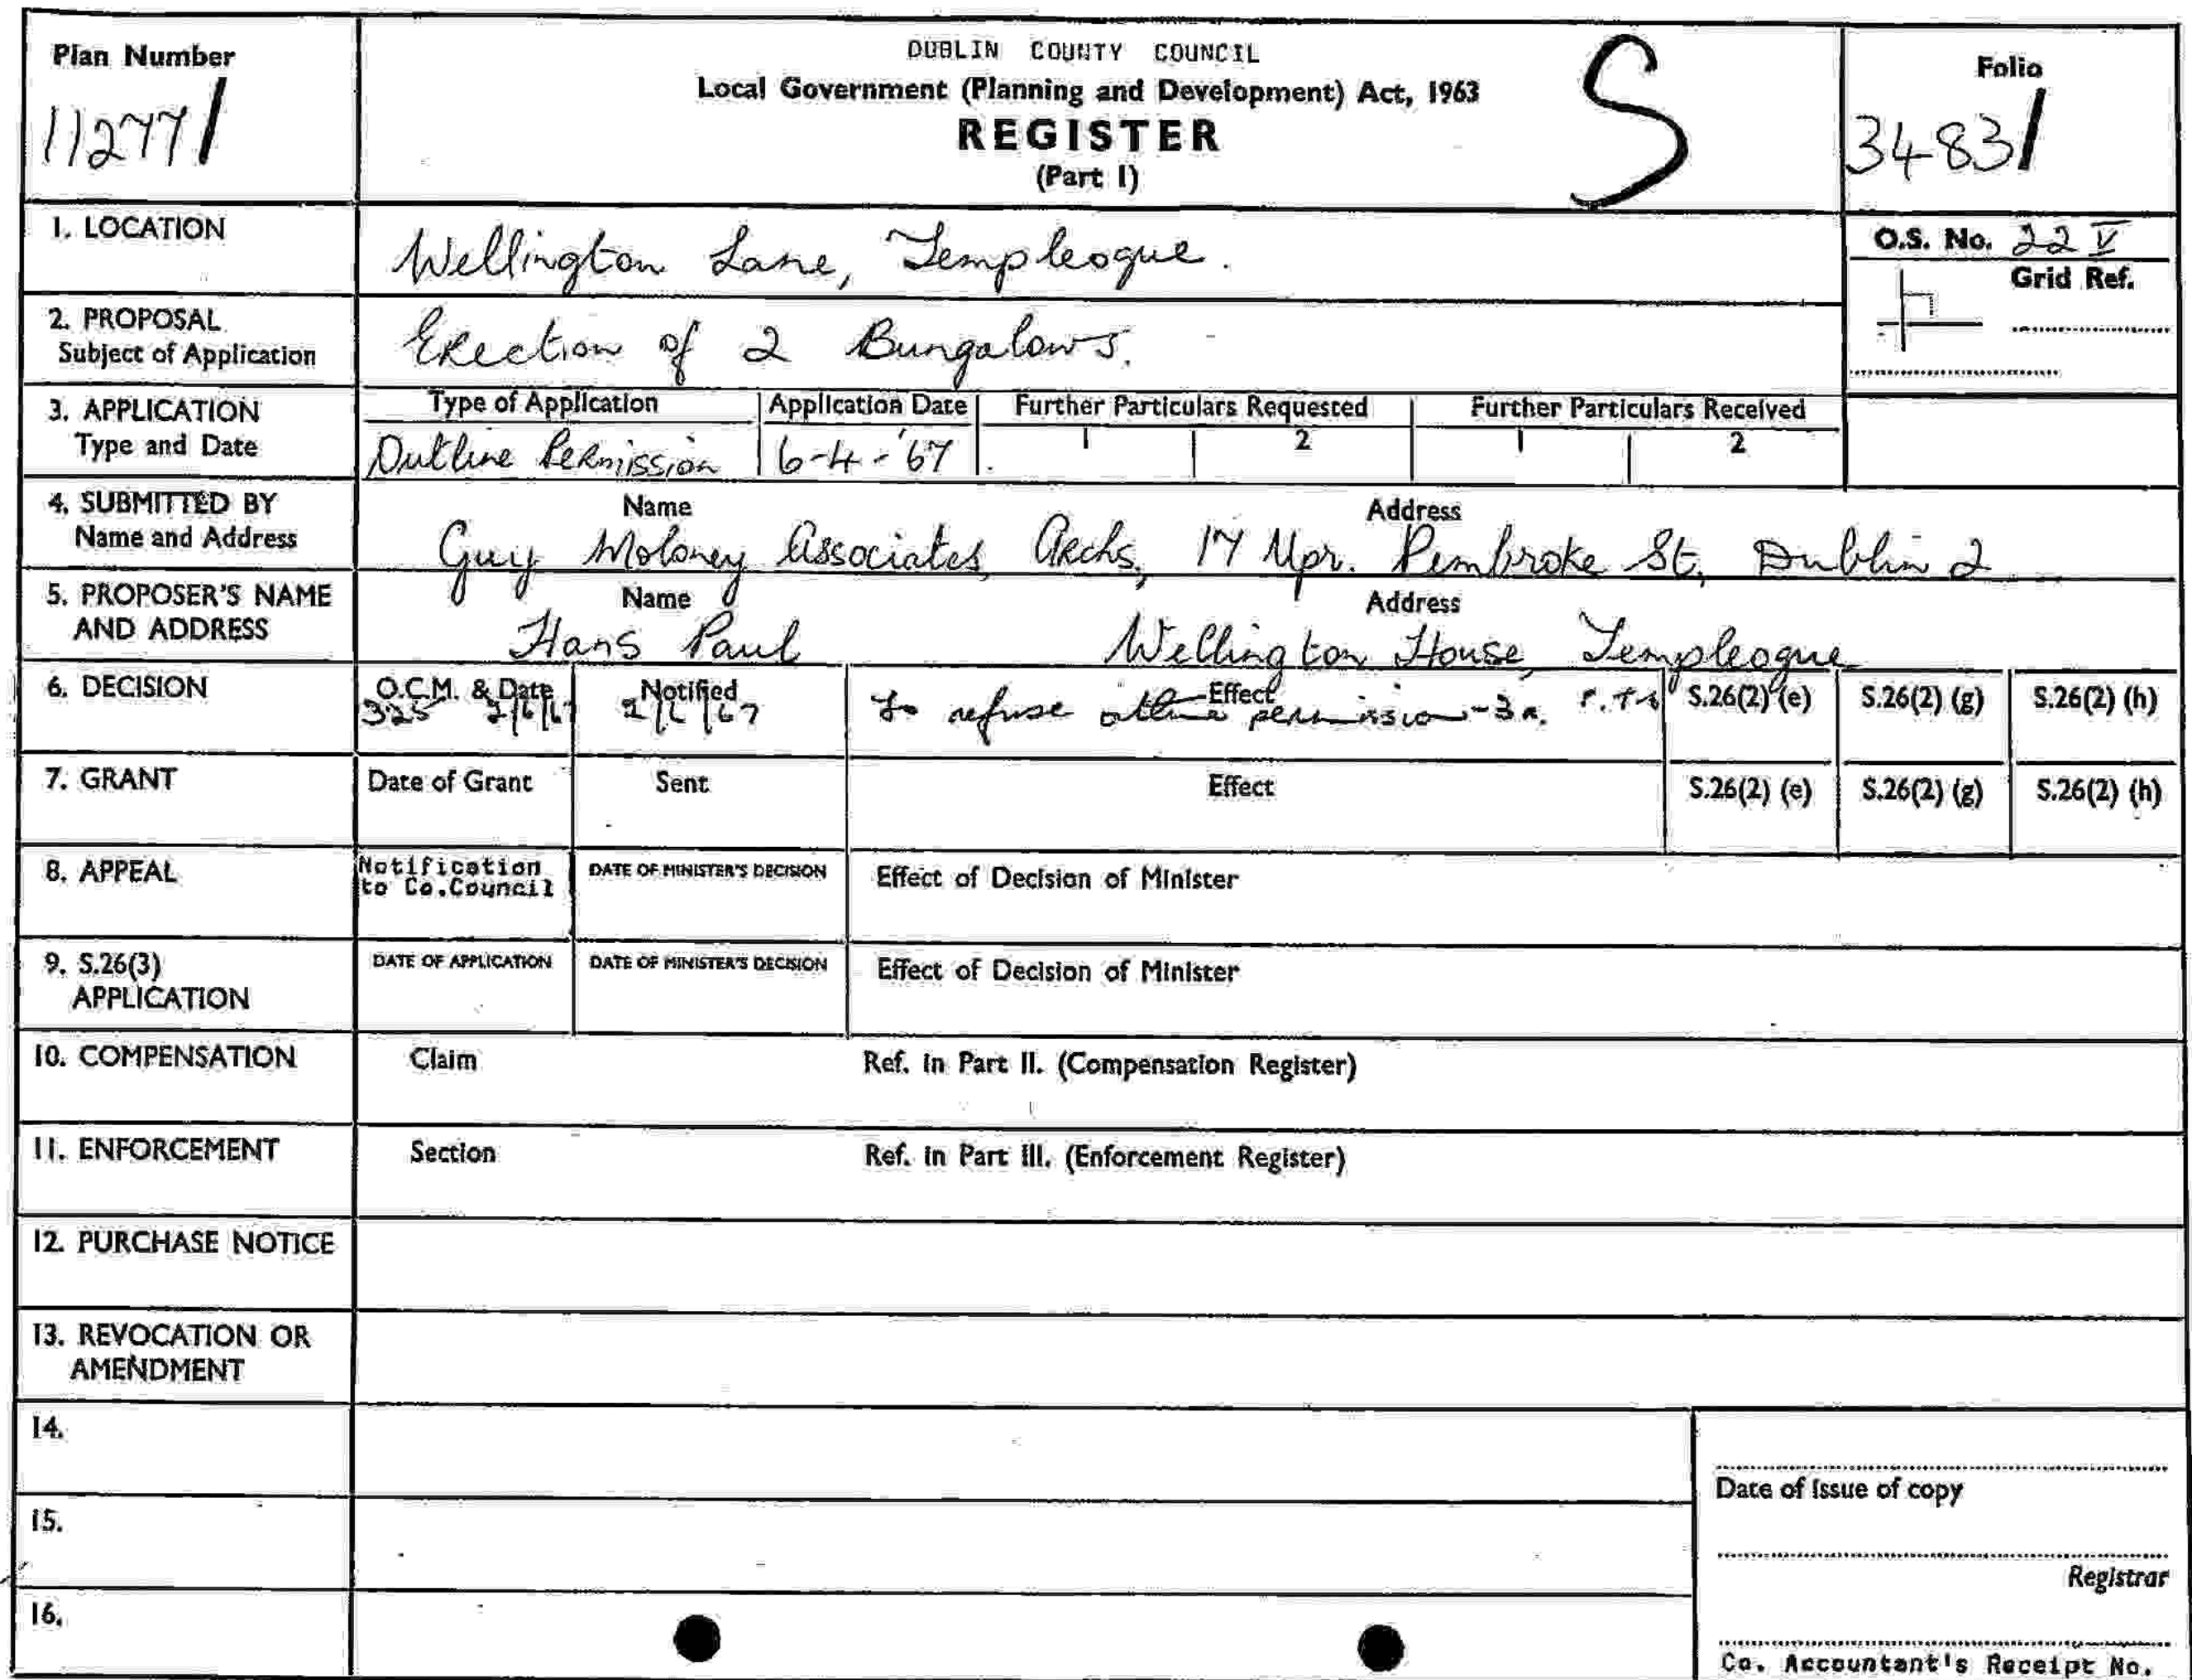 Plan Number
11277/
DUBLIN COUNTY COUNCIL
Local Government (Planning and Development) Act, 1963
REGISTER
(Part I)
S
Folio
3483/
1. LOCATION
Wellington Lane, Templeogue.
O.S. No. 22 V
Grid Ref.
2. PROPOSAL
Subject of Application
Erection of 2 Bungalows.
3. APPLICATION
Type and Date
Type of Application
Application Date
Further Particulars Requested
Further Particulars Received
Outline Permission
6-4-'67
1
2
1
2
4. SUBMITTED BY
Name and Address
Name
Address
Guy Moloney Associates, Archs, 17 Upr. Pembroke St, Dublin 2
5. PROPOSER'S NAME
AND ADDRESS
Name
Address
Hans Paul
Wellington House, Templeogue
6. DECISION
O.C.M. & Date
325 2/6/67
Notified
2/6/67
Effect
to refuse outline permission - 3 R.
S.26(2) (e)
S.26(2) (g)
S.26(2) (h)
7. GRANT
Date of Grant
Sent
Effect
S.26(2) (e)
S.26(2) (g)
S.26(2) (h)
8. APPEAL
Notification
to Co.Council
DATE OF MINISTER'S DECISION
Effect of Decision of Minister
9. S.26(3)
APPLICATION
DATE OF APPLICATION
DATE OF MINISTER'S DECISION
Effect of Decision of Minister
10. COMPENSATION
Claim
Ref. in Part II. (Compensation Register)
11. ENFORCEMENT
Section
Ref. in Part III. (Enforcement Register)
12. PURCHASE NOTICE
13. REVOCATION OR
AMENDMENT
14.
15.
16.
Date of issue of copy
Registrar
Co. Accountant's Receipt No.